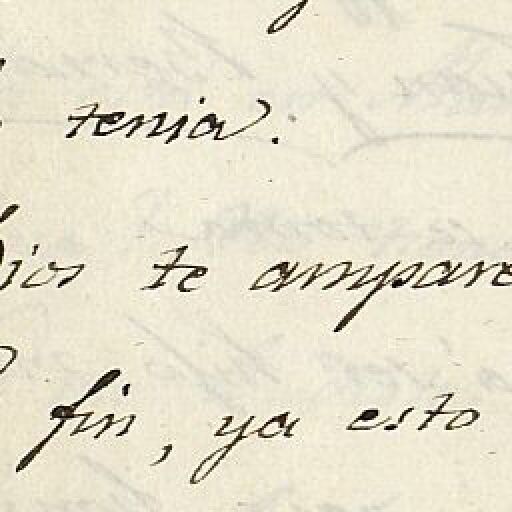 tenia.
Dios te ampare
fin, ya esto